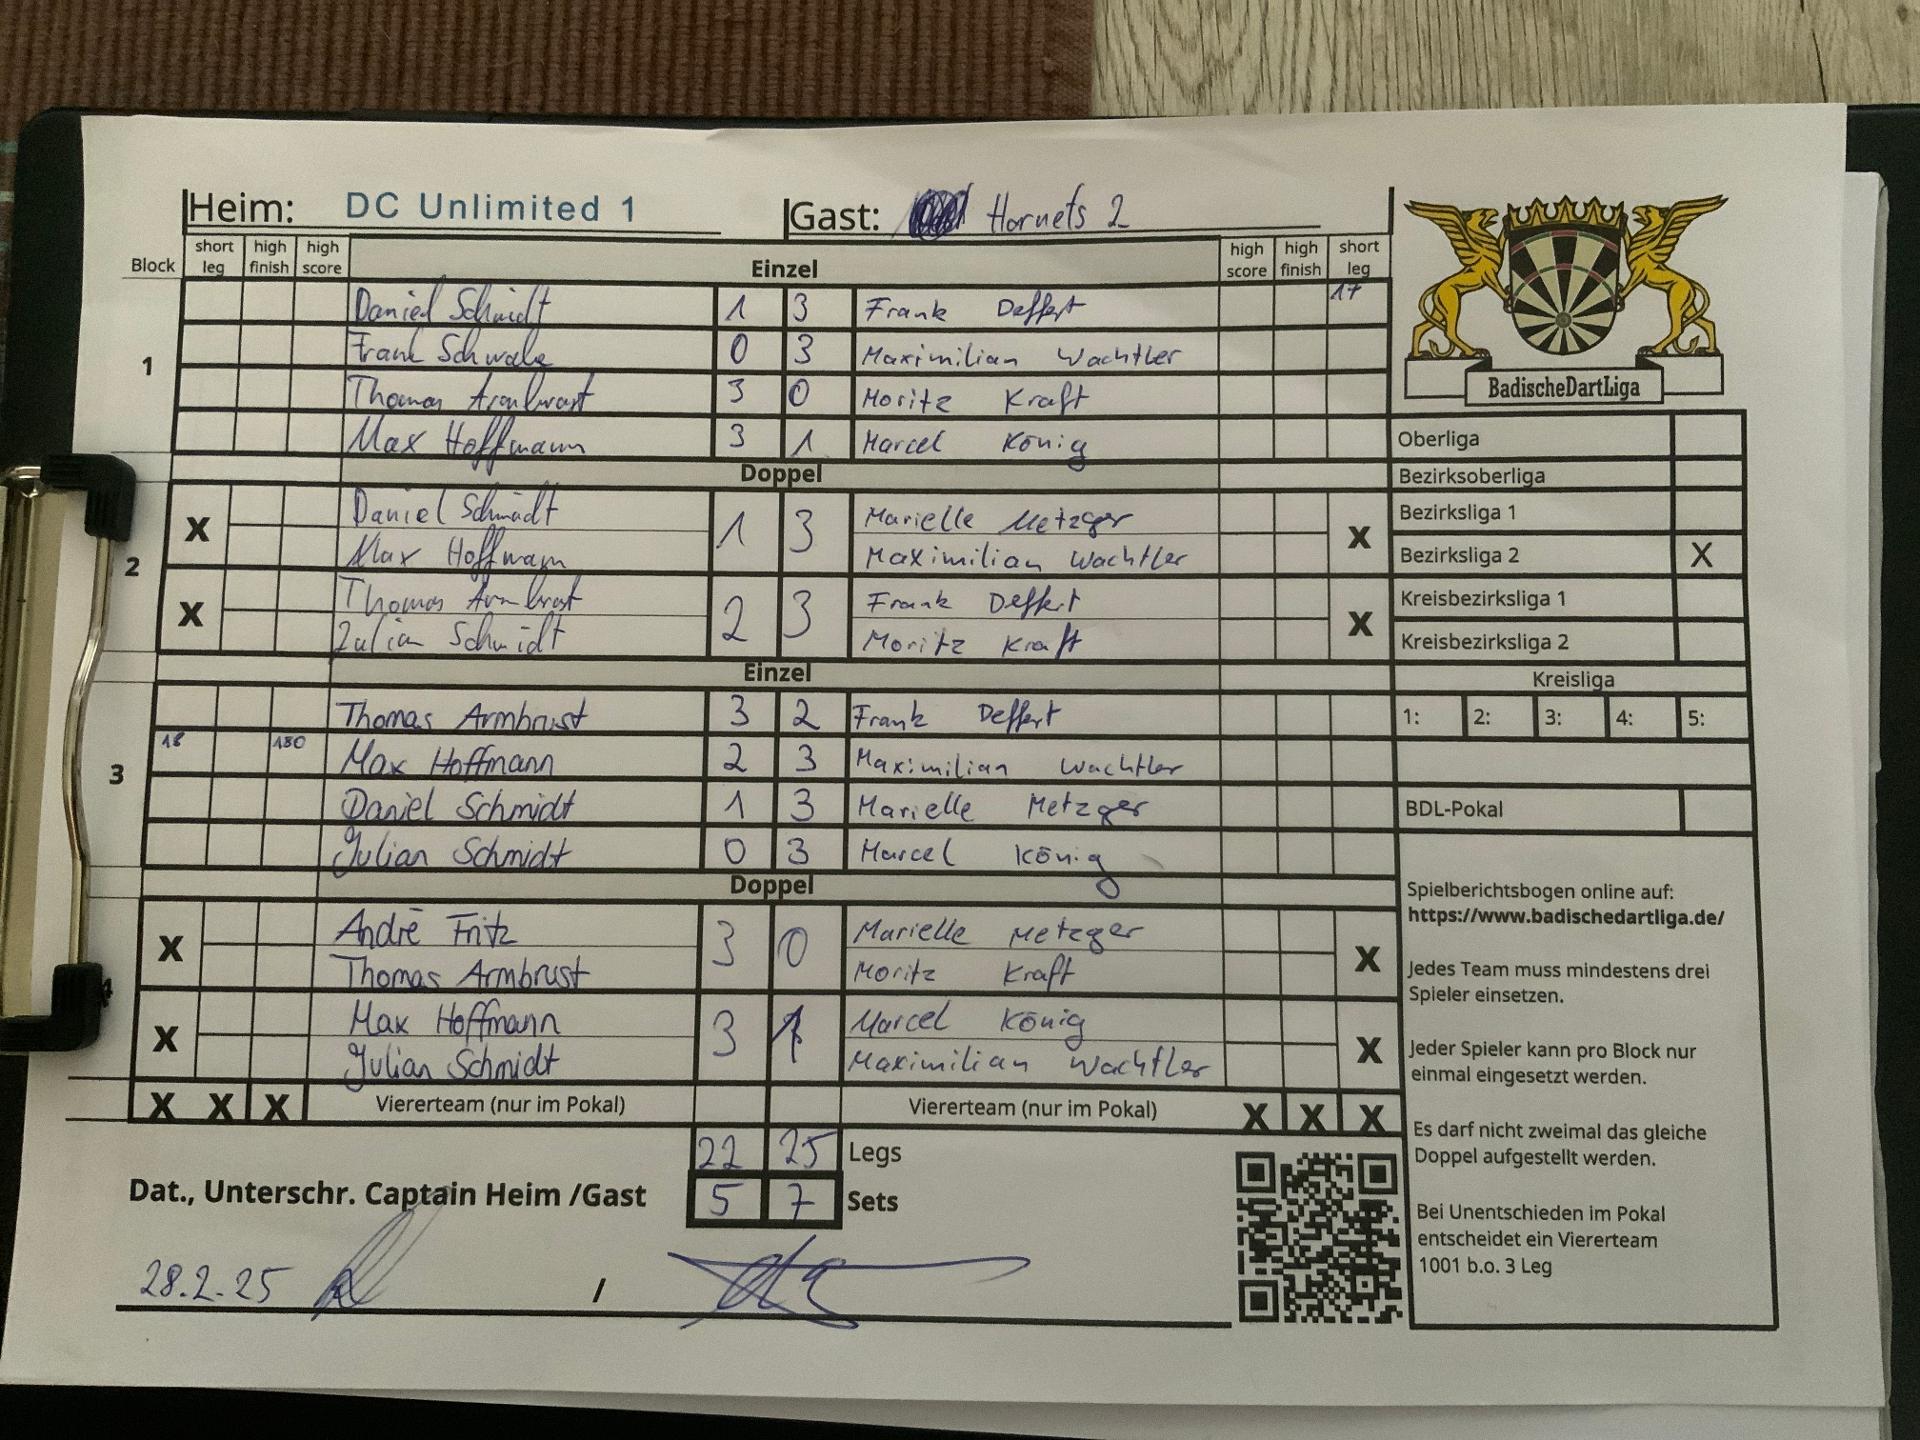 Heim: DC Unlimited 1 Gast: Hornets 2
Block short leg high finish high score Einzel high score high finish short leg
1
Daniel Schmidt 1 3 Frank Deffert 17
Frank Schwabe 0 3 Maximilian Wachtler
Thomas Armbrust 3 0 Moritz Kraft
Max Hoffmann 3 1 Marcel König
Doppel
2
X Daniel Schmidt 1 3 Marielle Metzger X
Max Hoffmann Maximilian Wachtler
X Thomas Armbrust 2 3 Frank Deffert X
Julian Schmidt Moritz Kraft
Einzel
3
Thomas Armbrust 3 2 Frank Deffert
18 180 Max Hoffmann 2 3 Maximilian Wachtler
Daniel Schmidt 1 3 Marielle Metzger
Julian Schmidt 0 3 Marcel König
Doppel
4
X André Fritz 3 0 Marielle Metzger X
Thomas Armbrust Moritz Kraft
X Max Hoffmann 3 1 Marcel König X
Julian Schmidt Maximilian Wachtler
X X X Viererteam (nur im Pokal) Viererteam (nur im Pokal) X X X
22 25 Legs
Dat., Unterschr. Captain Heim /Gast 5 7 Sets
28.2.25 /
BadischeDartLiga
Oberliga
Bezirksoberliga
Bezirksliga 1
Bezirksliga 2 X
Kreisbezirksliga 1
Kreisbezirksliga 2
Kreisliga
1: 2: 3: 4: 5:
BDL-Pokal
Spielberichtsbogen online auf:
https://www.badischedartliga.de/
Jedes Team muss mindestens drei
Spieler einsetzen.
Jeder Spieler kann pro Block nur
einmal eingesetzt werden.
Es darf nicht zweimal das gleiche
Doppel aufgestellt werden.
Bei Unentschieden im Pokal
entscheidet ein Viererteam
1001 b.o. 3 Leg